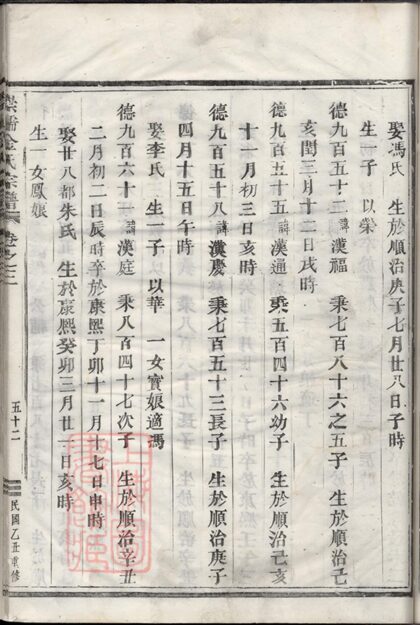 娶馮氏　生於順治庚子七月廿八日子時
生一子　以棠
德九百五十二諱漢福　秉七百八十六之五子　生於順治己
亥閏三月十二日戌時
德九百五十五諱漢通　秉五百四十六幼子　生於順治己亥
十一月初三日亥時
德九百五十八諱漢慶　秉七百五十三長子　生於順治庚子
四月十五日午時
娶李氏　生一子　以華　一女寳娘適馮
德九百六十一諱漢庭　秉八百四十七次子　生於順治辛丑
二月初二日辰時卒於康熙丁卯十一月十七日申時
娶廿八都朱氏　生於康熙癸卯三月廿一日亥時
生一女鳳娘
金氏宗譜　卷之二　五十二　民國乙丑重修